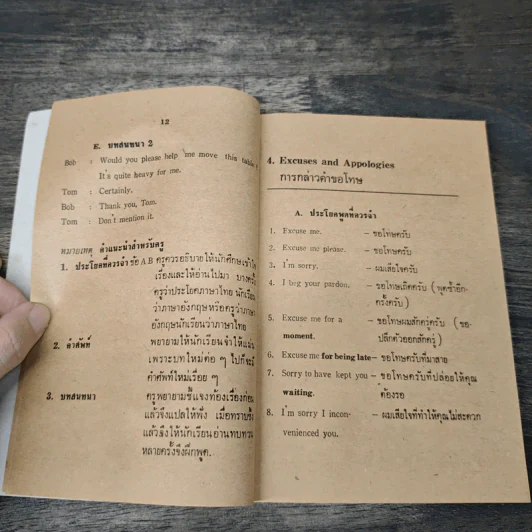 12
E. บทสนทนา 2
Bob : Would you please help me move this table,?
It's quite heavy for me.
Tom : Certainly.
Bob : Thank you, Tom.
Tom : Don't mention it.
หมายเหตุ คำแนะนำสำหรับครู
1. ประโยคที่ควรจำ ข้อ A B ครูควรอธิบายให้นักศึกษาเข้าใจ
เรื่องและให้อ่านไปมา บางครั้ง
ครูว่าประโยคภาษาไทย นักเรียน
ว่าภาษาอังกฤษหรือครูว่าภาษา
อังกฤษนักเรียนว่าภาษาไทย
2. คำศัพท์ พยายามให้นักเรียนจำให้แม่น
เพราะบทใหม่ต่อ ๆ ไปก็จะมี
คำศัพท์ใหม่เรื่อย ๆ
3. บทสนทนา ครูพยายามชี้แจงท้องเรื่องก่อน
แล้วจึงแปลให้ฟัง เมื่อทราบซึ้ง
แล้วจึงให้นักเรียนอ่านทบทวน
หลายครั้งจึงฝึกพูด.
4. Excuses and Appologies
การกล่าวคำขอโทษ
A. ประโยคพูดที่ควรจำ
1. Excuse me. – ขอโทษครับ
2. Excuse me please. – ขอโทษครับ
3. I'm sorry. – ผมเสียใจครับ
4. I beg your pardon. – ขอโทษเถิดครับ (พูดซ้ำอีก-
ครั้งครับ)
5. Excuse me for a – ขอโทษผมสักครู่ครับ (ขอ-
moment. ปลีกตัวออกสักครู่)
6. Excuse me for being late – ขอโทษครับที่มาสาย
7. Sorry to have kept you – ขอโทษครับที่ปล่อยให้คุณ
waiting. ต้องรอ
8. I'm sorry I incon- – ผมเสียใจที่ทำให้คุณไม่สะดวก
venienced you.